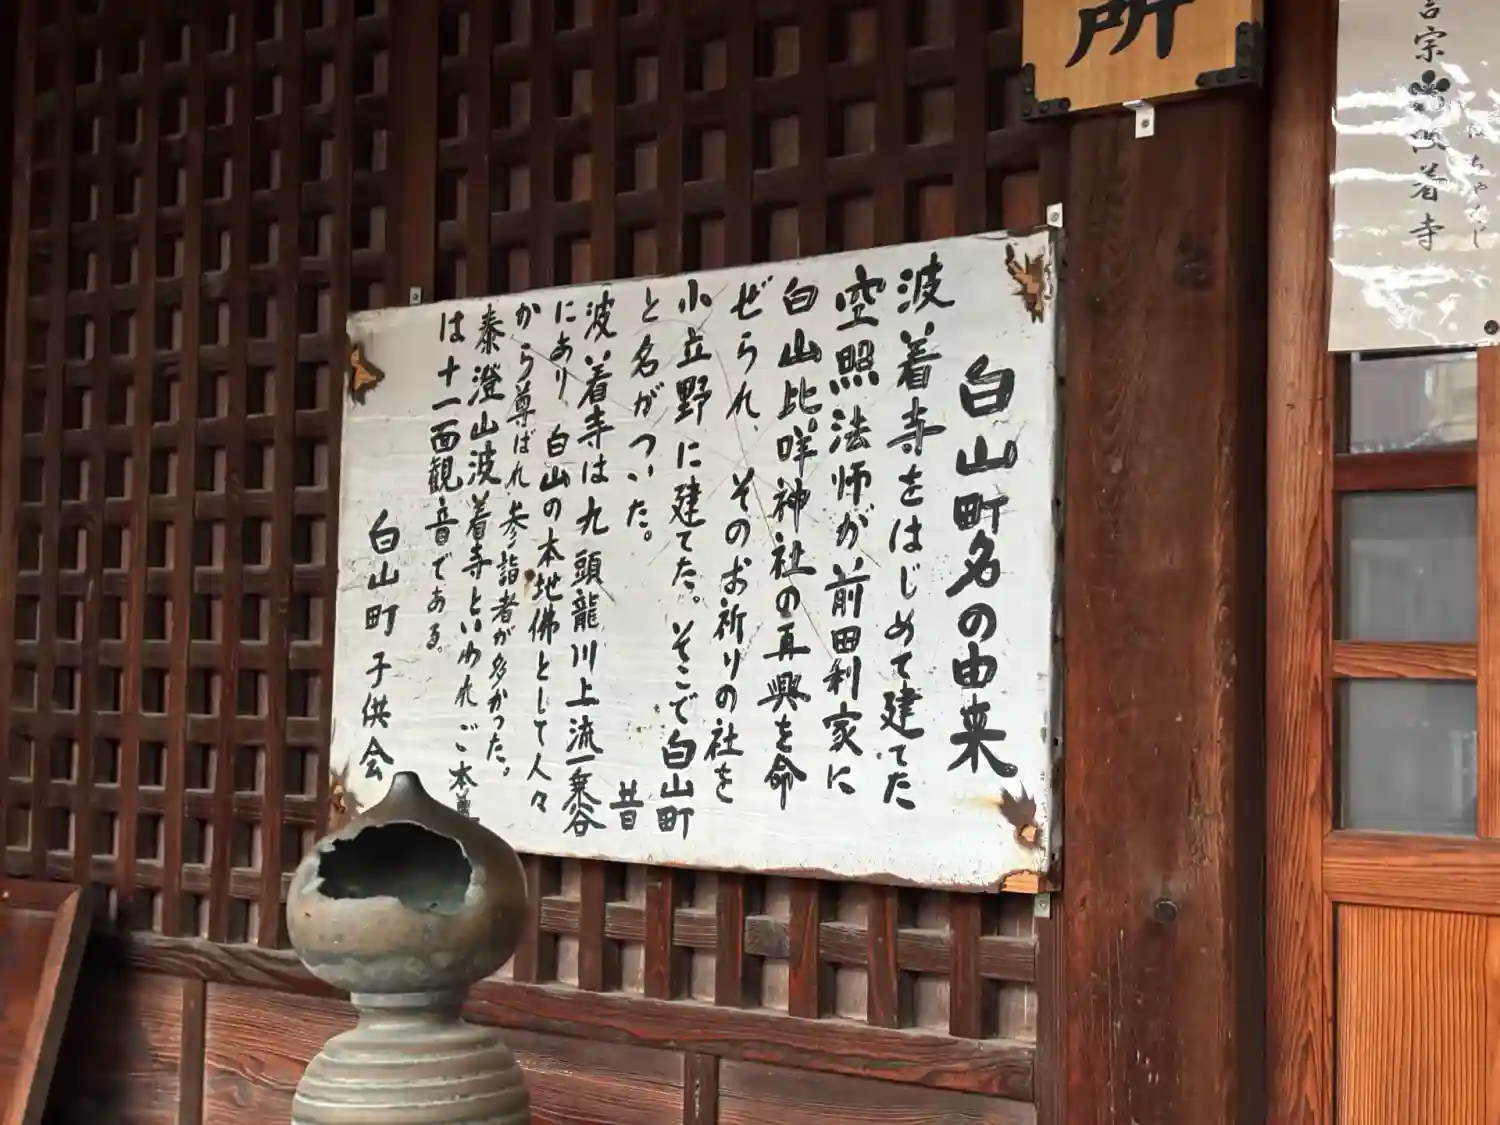 所
言宗
波着寺
はちゃくじ
白山町名の由来
波着寺をはじめて建てた
空照法師が前田利家に
白山比咩神社の再興を命
ぜられ、そのお祈りの社を
小立野に建てた。そこで白山町
と名がついた。 昔
波着寺は九頭龍川上流一乗谷
にあり、白山の本地佛として人々
から尊ばれ参詣者が多かった。
泰澄山波着寺といわれご本尊
は十一面観音である。
白山町子供会